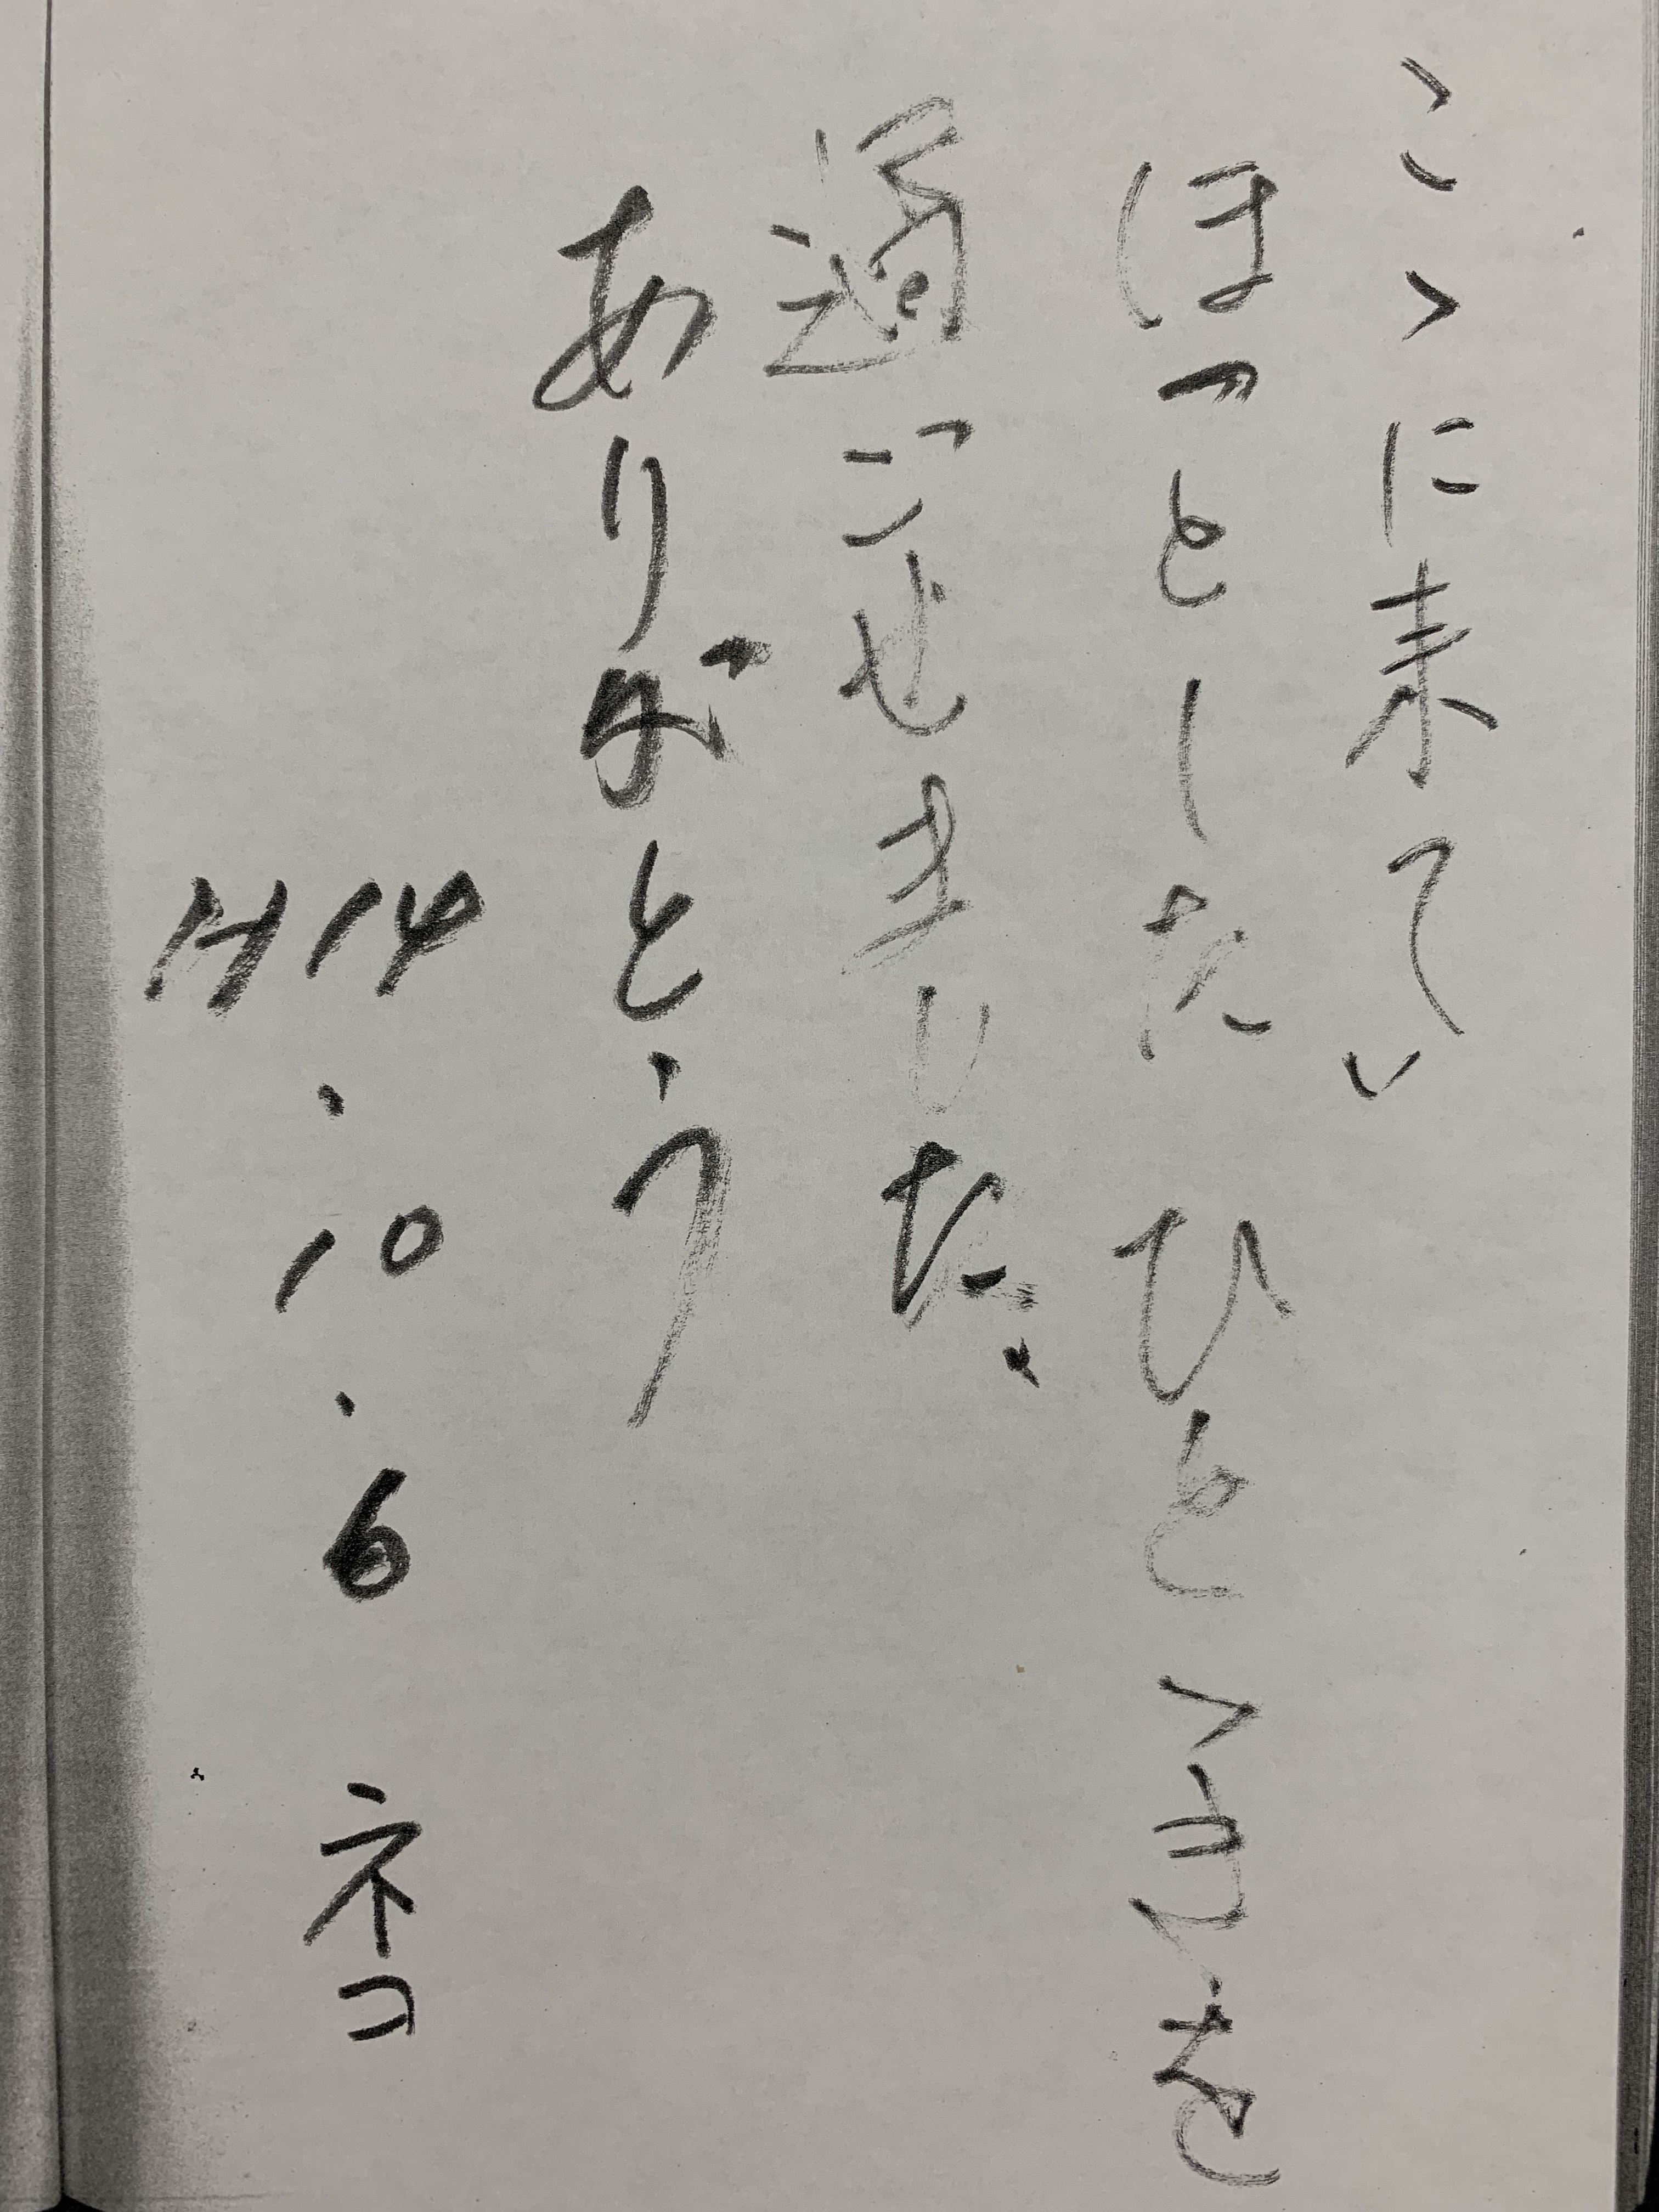 こゝに来て
ほっとした ひとときを
過ごせました。
ありがとう
H14.10.6 ネコ